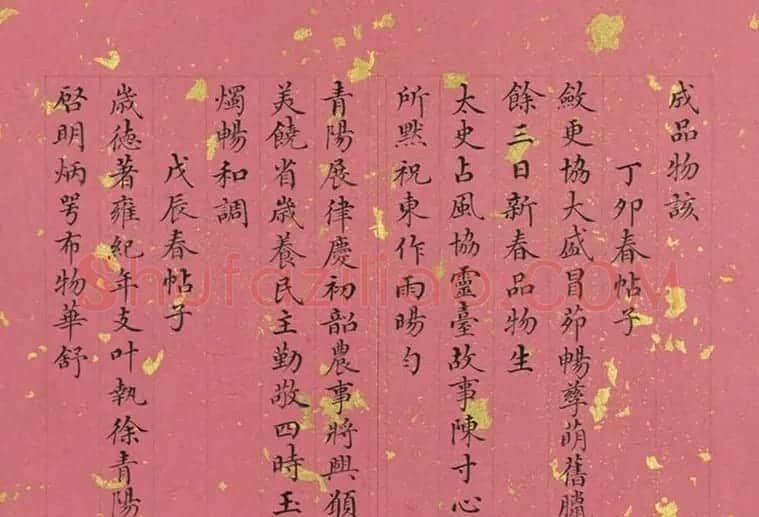 成品物該
丁卯春帖子
斂更協大盛冒茆暢孳萌舊臘
餘三日新春品物生
太史占風協靈臺故事陳寸心
所黙祝東作雨暘勻
青陽展律慶初韶農事將興願
美饒省歲養民主勤敬四時玉
燭暢和調
戊辰春帖子
歲德著雍紀年支叶執徐青陽
啓明炳咢布物華舒
Shufaziliao.COM